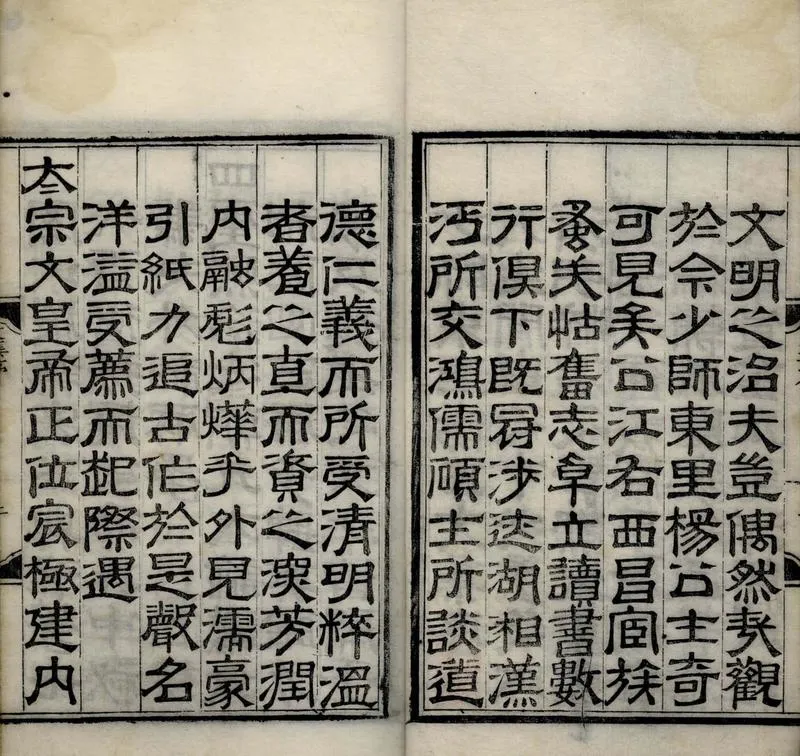 文明之治夫豈偶然哉觀
於今少師東里楊公士奇
可見矣公江右西昌宦族
蚤失怙奮志卓立讀書數
行俱下既冠涉迹湖湘漢
沔所交鴻儒碩士所談道
德仁義而所受清明粹溫
者養之直而資之深芳潤
內融彪炳燁乎外見濡毫
引紙力追古作於是聲名
洋溢受薦而起際遇
太宗文皇帝正位宸極建內